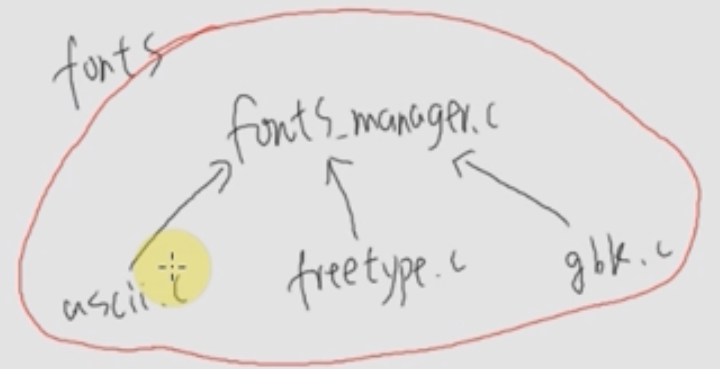 fonts
fonts_manager.c
ascii.c freetype.c gbk.c